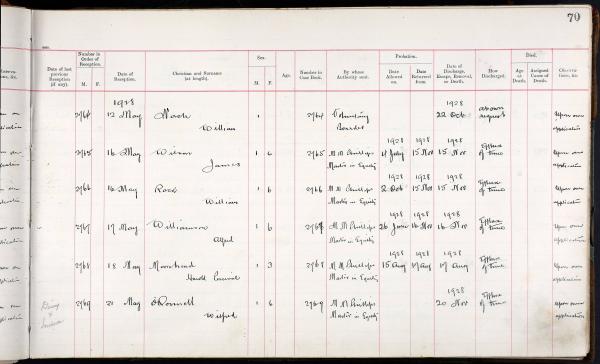 70
Date of last previous Reception (if any).
Number in Order of Reception.
M. F.
Date of Reception.
Christian and Surname (at length).
Sex.
M. F.
Age.
Number in Case Book.
By whose Authority sent.
Probation.
Date Allowed on.
Date Returned from.
Date of Discharge, Escape, Removal, or Death.
How Discharged.
Died.
Age at Death.
Assigned Cause of Death.
1928
12 May
William
1
Voluntary
Boarder
1928
22 Oct
at own
request
Upon own
application
2965 16 May Wilson
James
1 6
2965 M M Phillips
Master in Equity
1928
1928
15 Nov
1928
15 Nov
Efflux
of time
Upon own
application
2966 16 May Ross
William
1 6
2966 M M Phillips
Master in Equity
1928
2 Oct
1928
15 Nov
1928
15 Nov
Efflux
of time
Upon own
application
2967 17 May Williamson
Alfred
1 6
M M Phillips
Master in Equity
1928
26 June
1928
16 Nov
1928
16 Nov
Efflux
of time
Upon own
application
2968 18 May Moorhead
Harold
1 3
2968 M M Phillips
Master in Equity
1928
15 Aug
1928
17 Aug
1928
17 Aug
Efflux
of time
Upon own
application
2969 21 May O'Donnell
Wilfred
1 6
2969 M M Phillips
Master in Equity
1928
20 Nov
Efflux
of time
Upon own
application